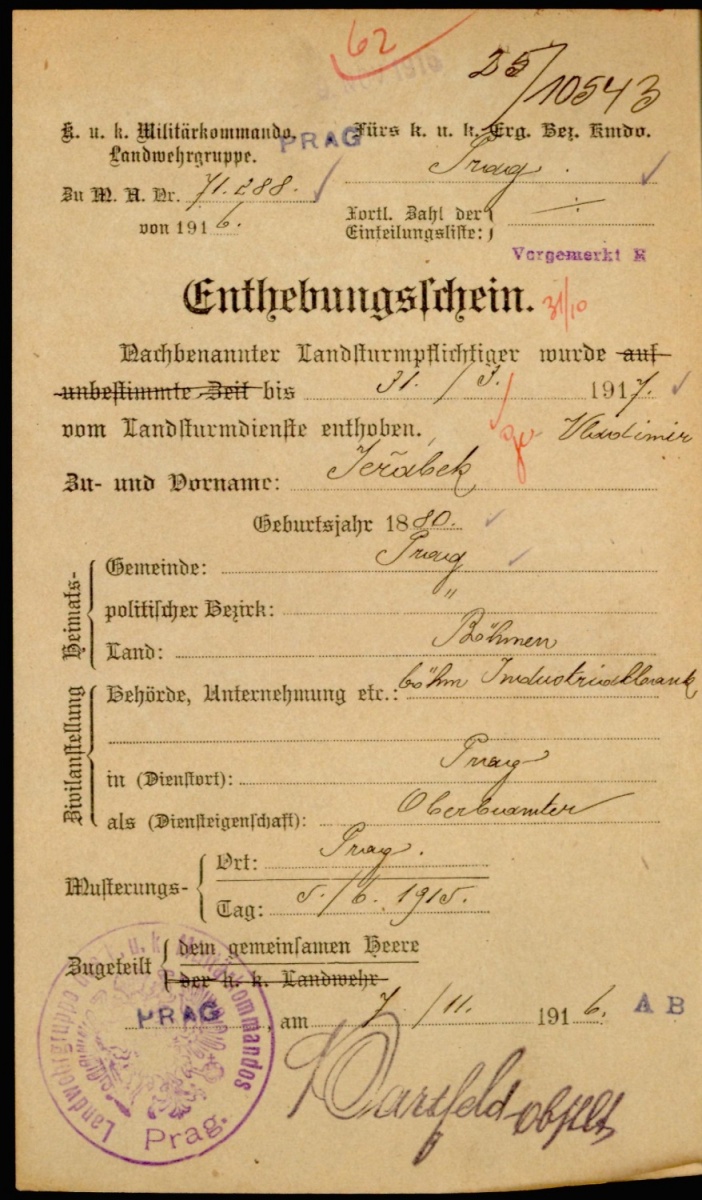 62
25/10543
K. u. k. Militärkommando, PRAG Fürs k. u. k. Erg. Bez. Kmdo.
Landwehrgruppe. Prag.
Zu M. A. Nr. 71.288.
von 1916. Fortl. Zahl der Einteilungsliste: ÷
Vorgemerkt E
Enthebungsschein. 31/10
Nachbenannter Landsturmpflichtiger wurde auf
unbestimmte Zeit bis 31. / 3. 1917.
vom Landsturmdienste enthoben. Vladimir
Zu- und Vorname: Jeřábek
Geburtsjahr 1880.
Heimats-
Gemeinde: Prag
politischer Bezirk: "
Land: Böhmen
Zivilanstellung
Behörde, Unternehmung etc.: böhm Industrialbank
in (Dienstort): Prag
als (Diensteigenschaft): Oberbeamter
Musterungs-
Ort: Prag.
Tag: 5./6. 1915.
Zugeteilt
dem gemeinsamen Heere
der k. k. Landwehr
PRAG, am 7/11. 1916. A B
Landwehrgruppe des k. u. k. Militärkommandos
Prag.